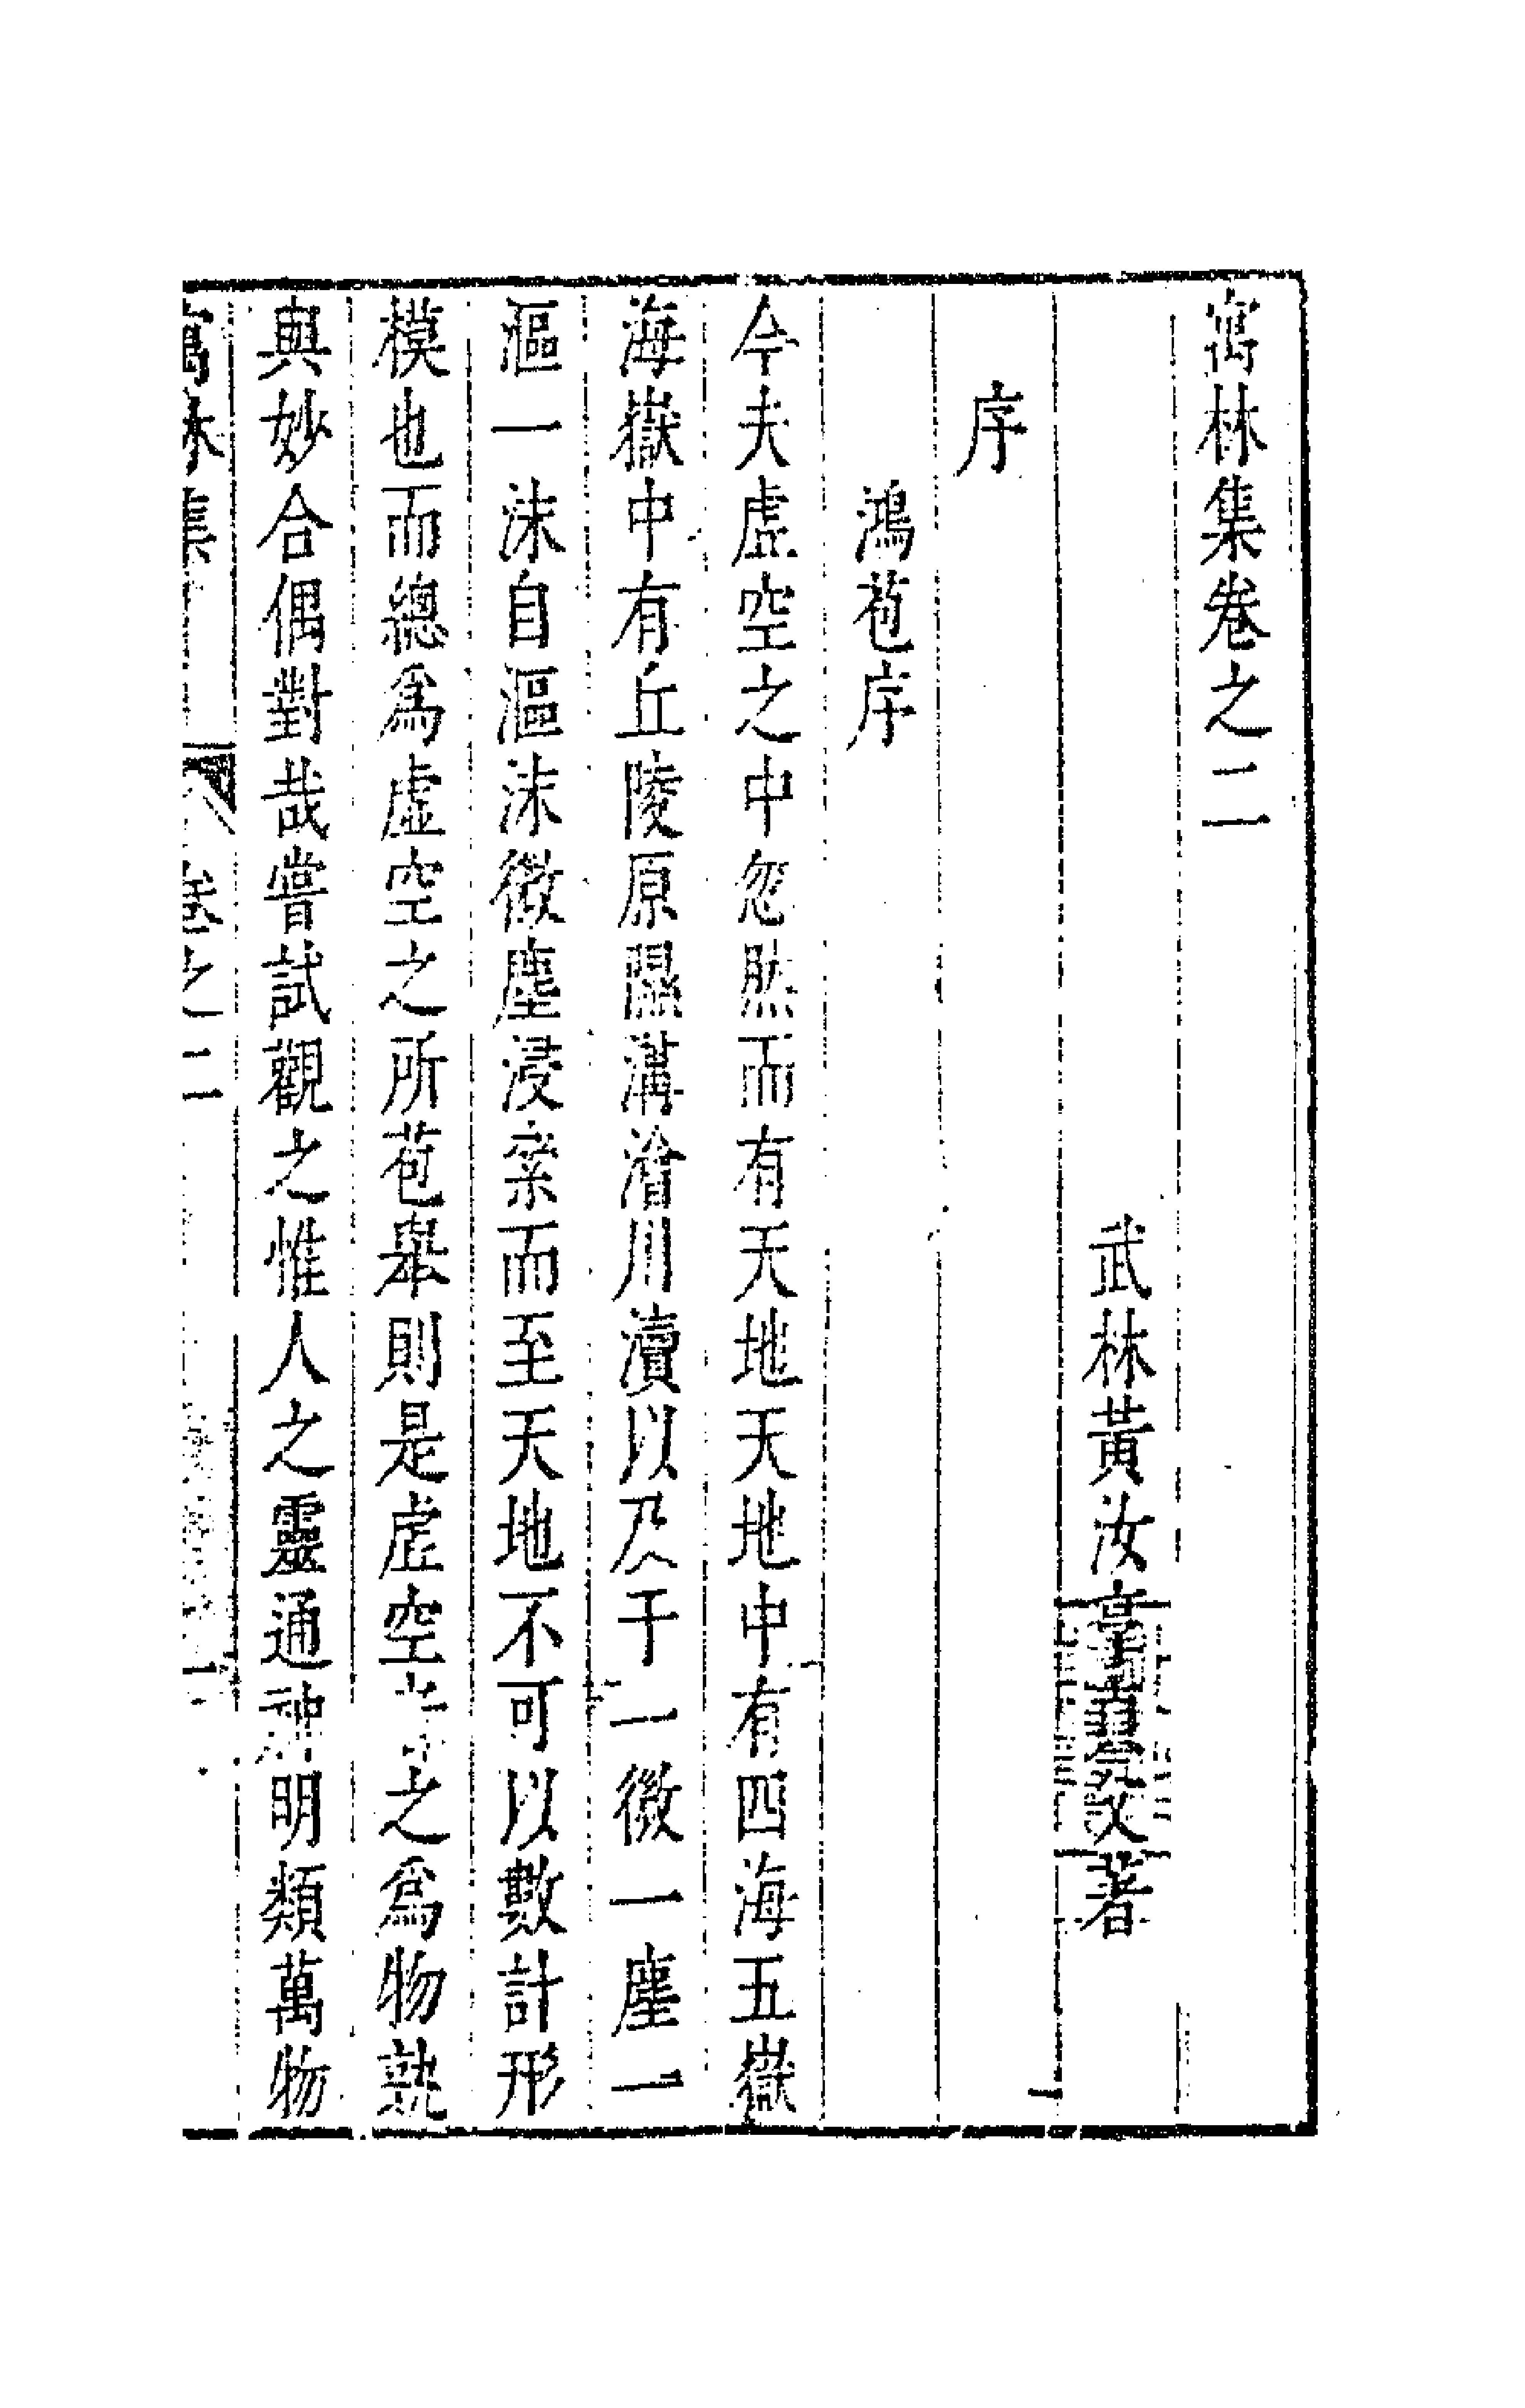 寓林集卷之二
武林黃汝亨貞父著
序
鴻苞序
今夫虛空之中忽然而有天地天地中有四海五嶽
海嶽中有丘陵原隰溝澮川瀆以及于一微一塵一
漚一沫自漚沫微塵浸尋而至天地不可以數計形
模也而總爲虛空之所苞舉則是虛空之爲物孰
與妙合偶對哉嘗試觀之惟人之靈通神明類萬物
寓林集 卷之二